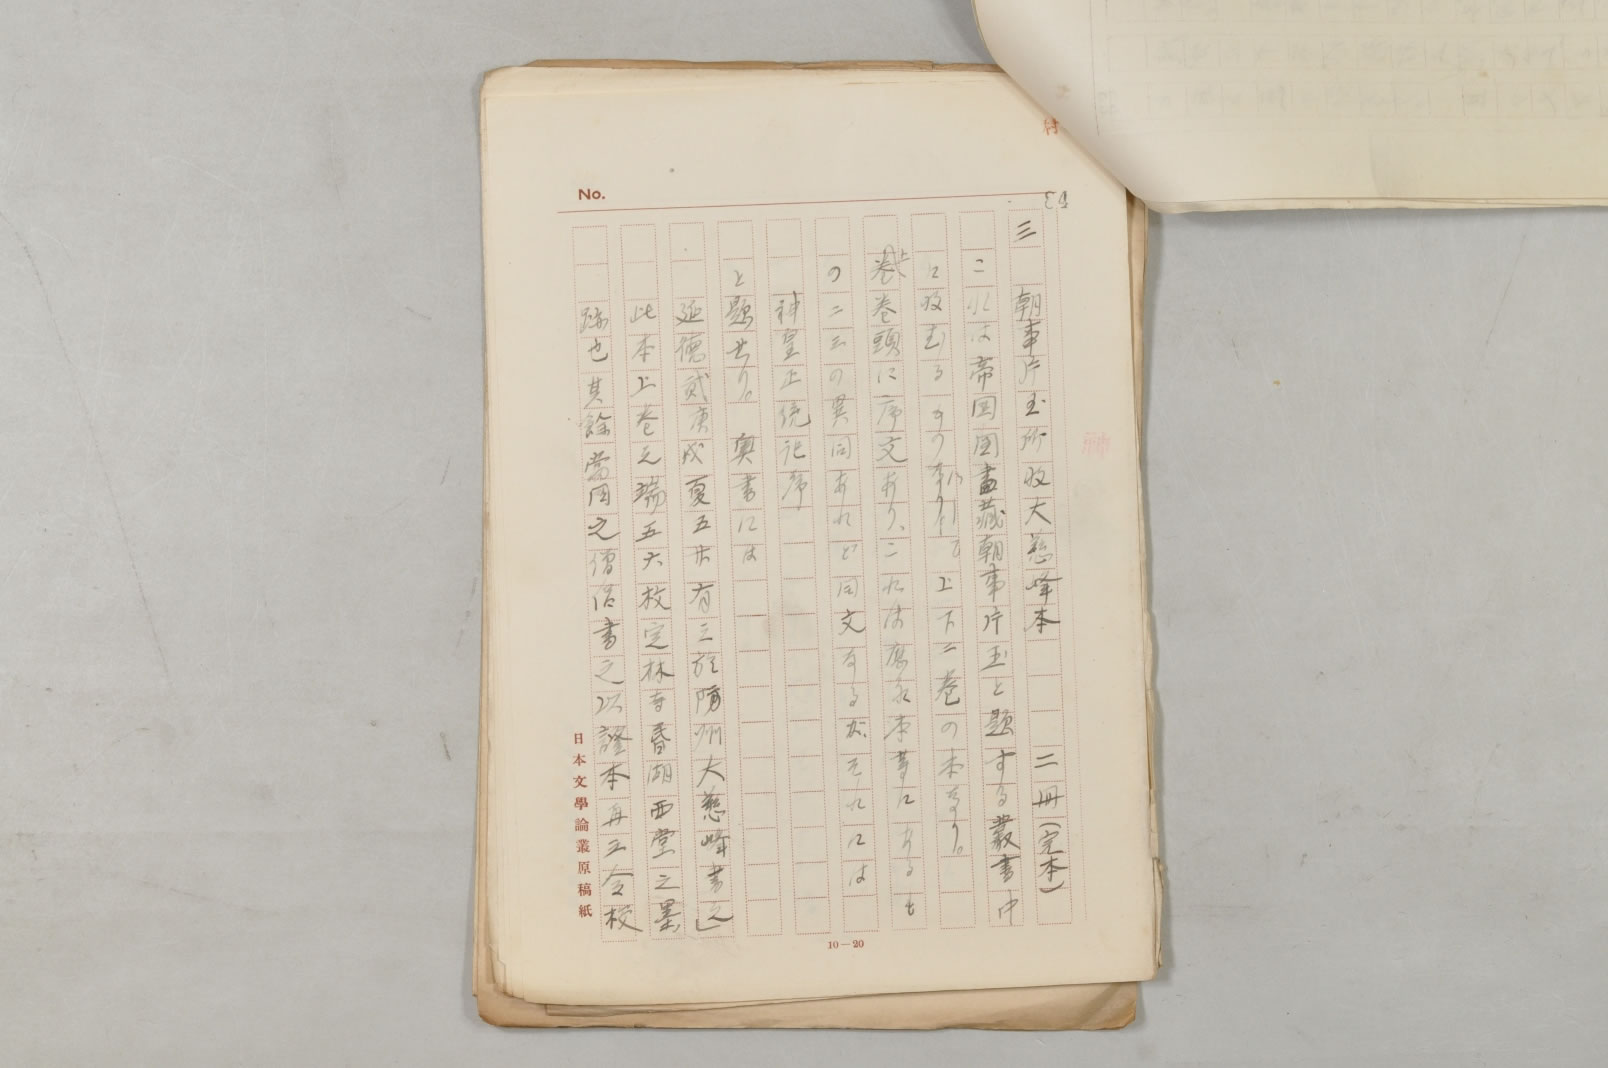 No.
三　朝事片玉所収大慈峰本　二冊(完本)
これは帝国図書蔵朝事片玉と題する叢書中
に収むるもの上下二巻の本なり。
上巻巻頭に序文あり、これは應永本等にあるも
の二三の異同あれど同文なるが、それには
神皇正統記序
と題せり。奥書には
延徳貳庚戌夏五廿有三於防州大慈峰書之」
此本上巻之端五六枚定林寺春湖西堂之墨
跡也其餘當国之僧俗書之以證本再三令校
日本文學論叢原稿紙
10—20